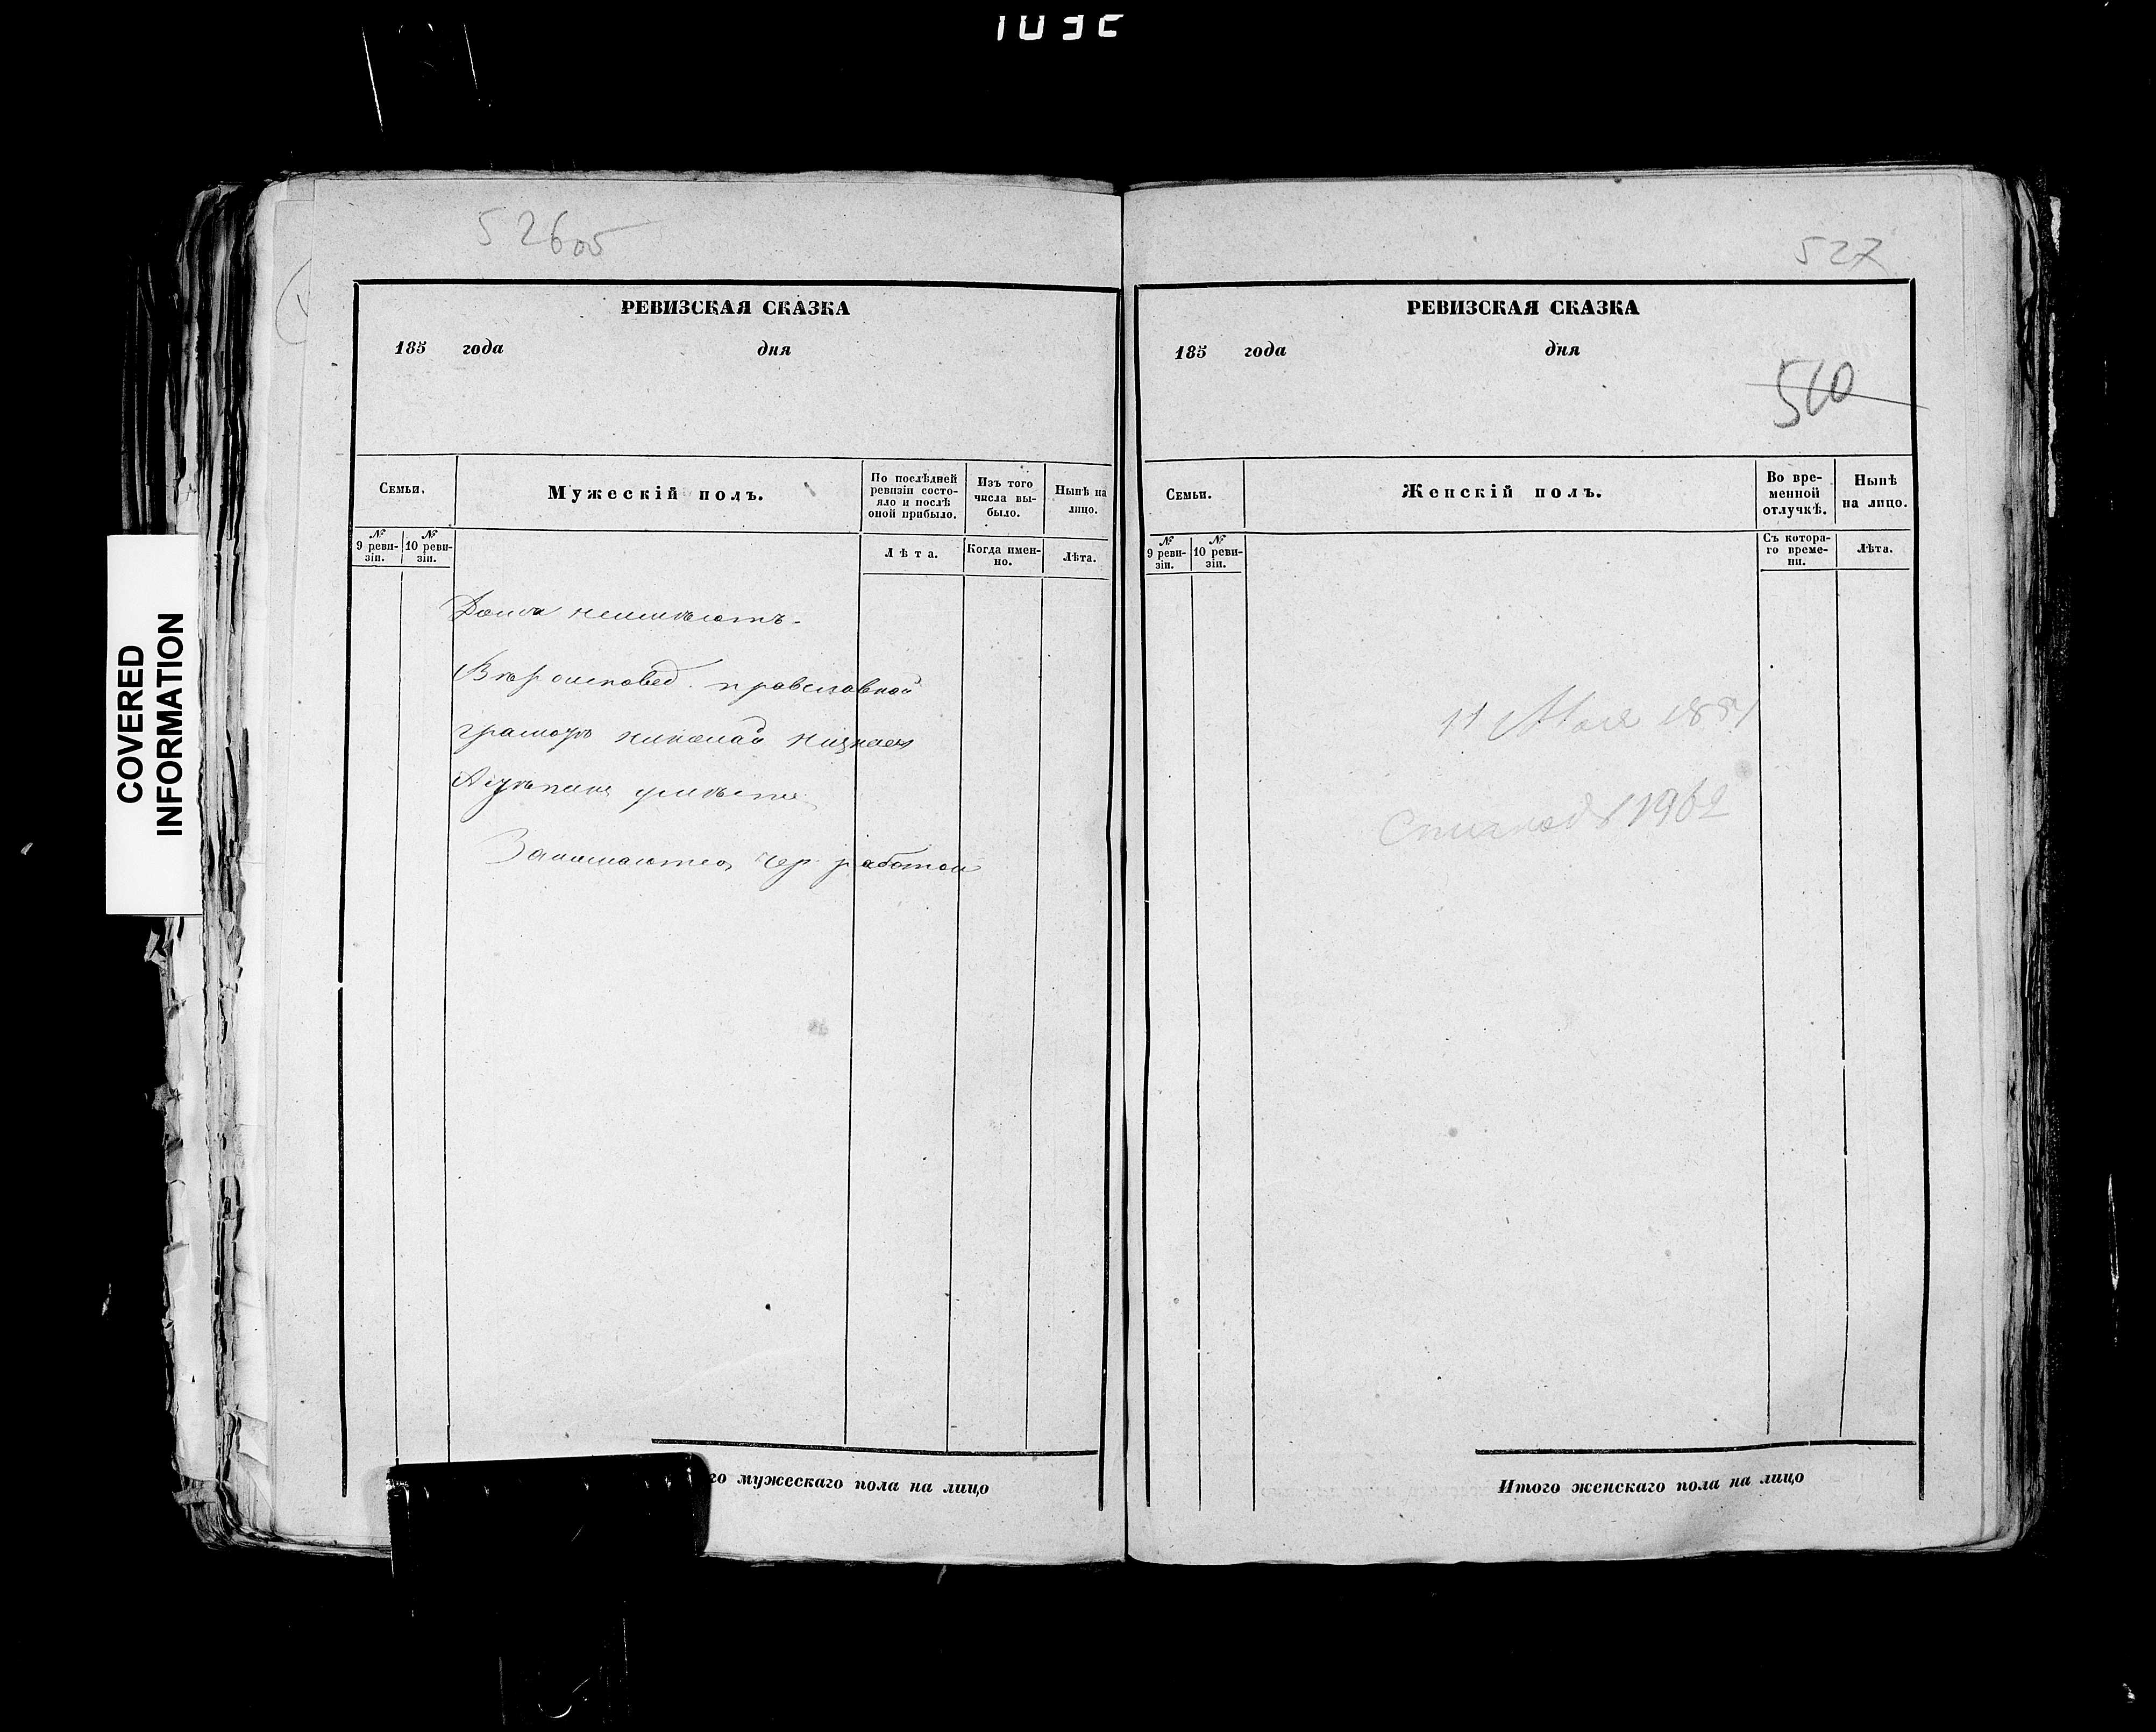 526об
РЕВИЗСКАЯ СКАЗКА
185 года дня
Семьи.
Мужескій полъ.
По послѣдней ревизіи состояло и послѣ оной прибыло.
Изъ того числа выбыло.
Нынѣ на лицо.
№ 9 ревизіи.
№ 10 ревизіи.
Лѣта.
Когда именно.
Лѣта.
Дома неимѣютъ.
Вѣроисповед. православной
грамотѣ николай
Занимаются чер. работой
го мужескаго пола на лицо
527
РЕВИЗСКАЯ СКАЗКА
185 года дня
510
Семьи.
Женскій полъ.
Во временной отлучкѣ.
Нынѣ на лицо.
№ 9 ревизіи.
№ 10 ревизіи.
Съ котораго времени.
Лѣта.
11 Мая
Итого женскаго пола на лицо
COVERED
INFORMATION